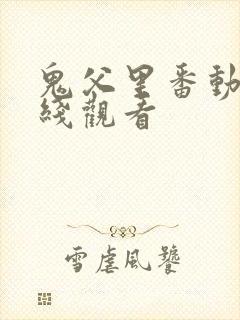 鬼父里番動
綫觀看
雪虐風饕